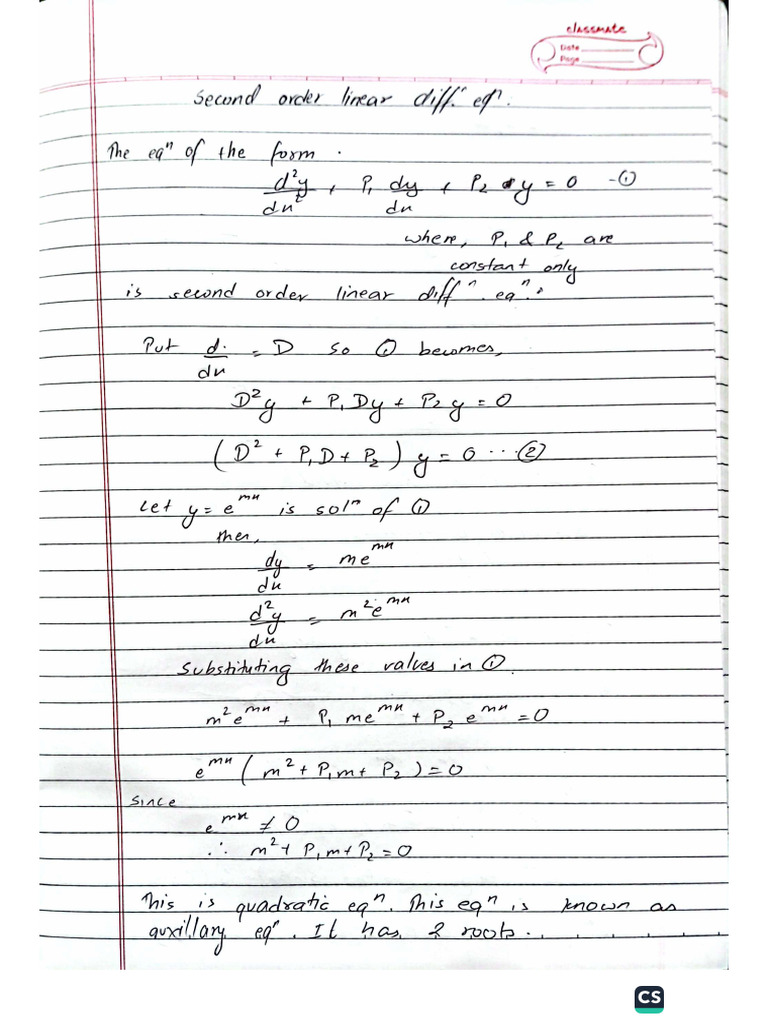 classmate
Date
Page
Second order linear diff.ⁿ eqⁿ.
The eqⁿ of the form.
d²y/dx² + P₁ dy/dx + P₂ y = 0 -①
where, P₁ & P₂ are
constant only
is second order linear diffⁿ. eqⁿ.
Put d./dx = D so ① becomes,
D²y + P₁Dy + P₂y = 0
(D² + P₁D + P₂) y = 0 ... ②
Let y = e^mx is solⁿ of ①
then,
dy/dx = me^mx
d²y/dx = m²e^mx
Substituting these values in ①.
m²e^mx + P₁ me^mx + P₂ e^mx = 0
e^mx (m² + P₁m + P₂) = 0
Since
e^mx ≠ 0
∴ m² + P₁m + P₂ = 0
This is quadratic eqⁿ. This eqⁿ is known as
auxillary eqⁿ. It has 2 roots.
CS